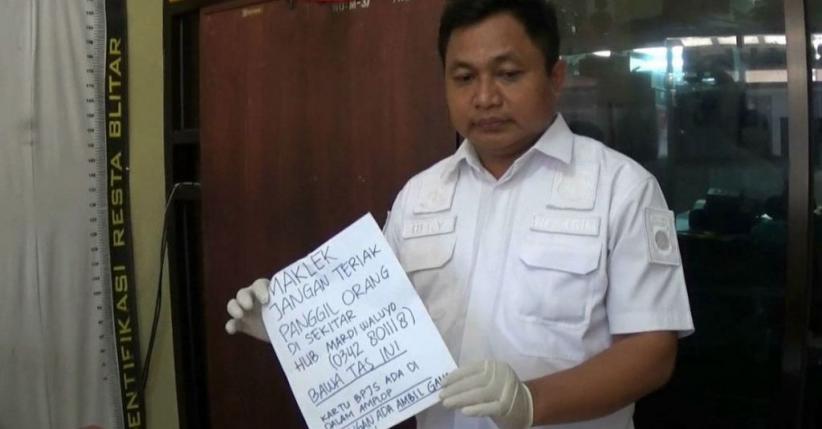 ENTIFIKASI RESTA BLITAR
MAKLEK
JANGAN TERIAK
PANGGIL ORANG
DI SEKITAR
HUB MARDI WALUYO
(0342 801118)
BAWA TAS INI
KARTU BPJS ADA DI
DALAM AMPLOP
ADA AMBIL